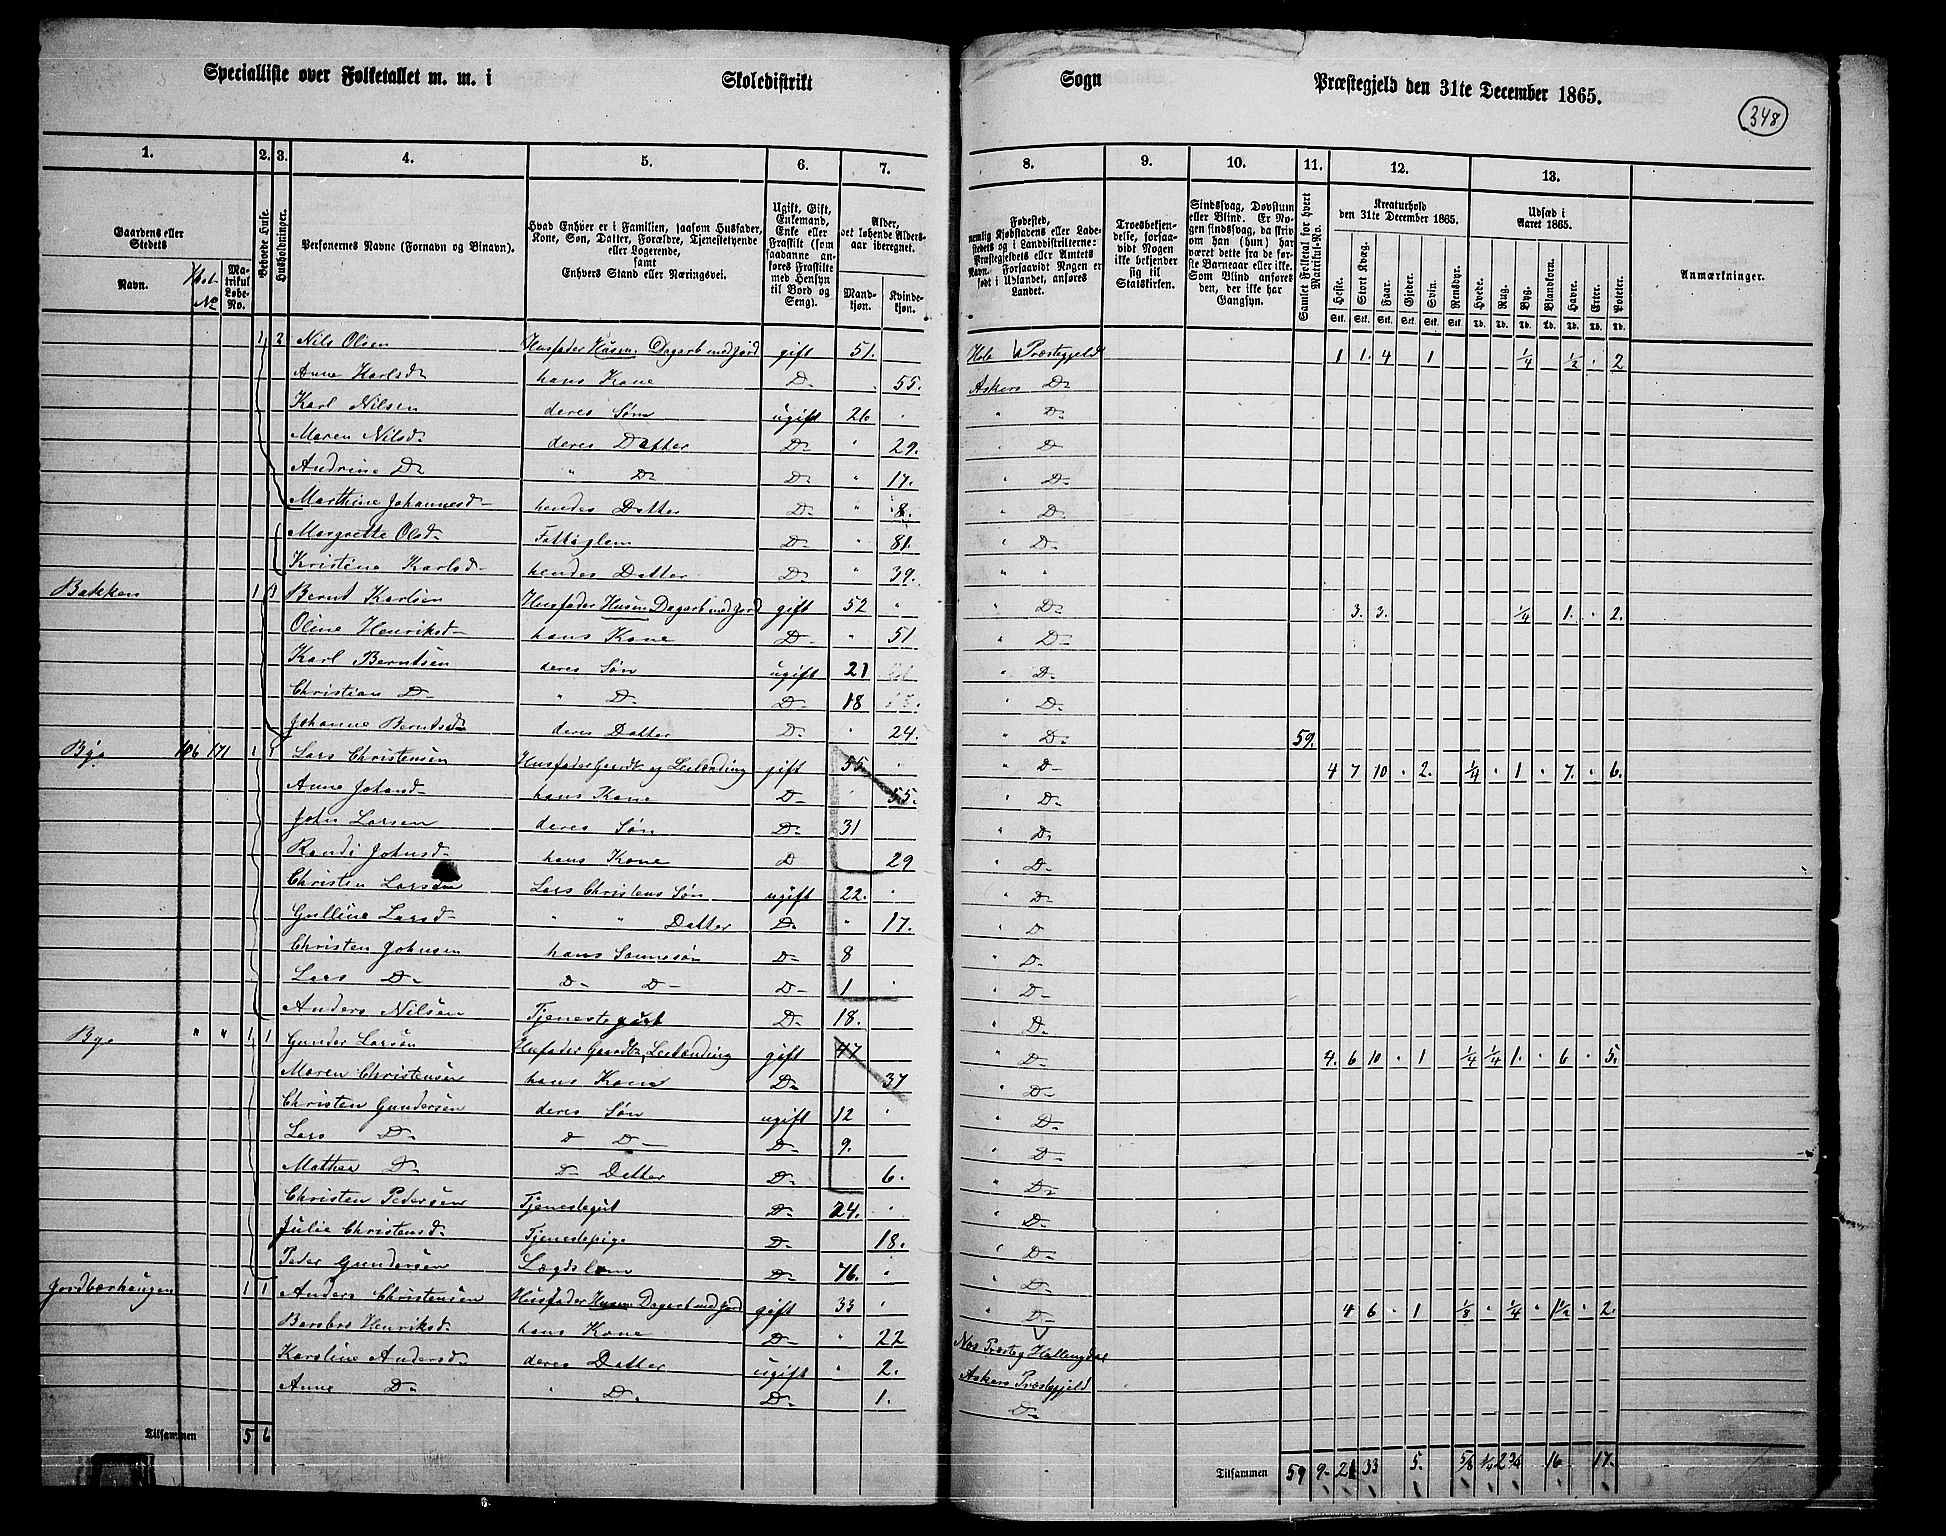 Specialliste over Folketallet m. m. i Skoledistrikt Sogn Præstegjeld den 31te December 1865.
348
1. 2. 3. 4. 5. 6. 7. 8. 9. 10. 11. 12. 13.
Gaardens eller Stedets
Navn.
Matrikul Løbe-No.
Beboede Huse.
Husholdninger.
Personernes Navne (Fornavn og Binavn).
Hvad Enhver er i Familien, saasom Husfader, Kone, Søn, Datter, Forældre, Tjenestetyende eller Logerende, samt Enhvers Stand eller Næringsvei.
Ugift, Gift, Enkemand, Enke eller Fraskilt (som saadanne anføres Fraskilte med Hensyn til Bord og Seng).
Alder, det løbende Alders-aar iberegnet.
Mandkjøn. Kvindekjøn.
Fødested,
nemlig Kjøbstadens eller Ladestedets og i Landdistrikterne: Præstegjeldets eller Amtets Navn. Forsaavidt Nogen er født i Udlandet, anføres Landet.
Troesbekjendelse, forsaavidt Nogen ikke bekjender sig til Statskirken.
Sindssvag, Døvstum eller Blind. Er Nogen sindssvag, da skriv om han (hun) har været dette fra de første Barneaar eller ikke. Som Blind anføres den, der ikke har Gangsyn.
Samlet Folketal for hvert Matrikul-No.
Kreaturhold den 31te December 1865.
Heste. Stort Kvæg. Faar. Gjeder. Svin. Rensdyr.
Udsæd i Aaret 1865.
Hvede. Rug. Byg. Blandkorn. Havre. Erter. Poteter.
Stk. Stk. Stk. Stk. Stk. Stk. Td. Td. Td. Td. Td. Td. Td.
Anmærkninger.
1 2 Nils Olsen Husfader Husm. Dagarb med Jord gift 51. Hole Præstegjeld 1 1. 4 1 1/4 1/2 · 2
Anne Karlsd. hans Kone D- 55. Askers D-
Karl Nilsen deres Søn ugift 26 " D-
Maren Nilsd- deres Datter D- " 29. D-
Andrine D- " D- D- " 17. " D-
Marthine Johannesd- hendes Datter D- " 8. " D-
Margrethe Olsd- D- " 81. " D-
Kristine Karlsd- hendes Datter D- " 39. " "
Bakken 1 1 Bernt Karlsen Husfader Husm Dagarb med Jord gift 52 " " D- 3. 3. 1/4 1. · 2.
Oline Henriksd- hans Kone D- " 51 " D-
Karl Berntsen deres Søn ugift 21 " D-
Christian D- " D- D- 18 " D-
Johanne Berntsd- deres Datter D- " 24. " D- 59.
Bye 106 171 1 Lars Christensen Husfader Gaardb og Leilænding gift 55 " D- 4 7 10 · 2. 1/4 · 1 · 7. · 6.
Anne Johansd- hans Kone D- 55. " D-
John Larsen deres Søn D- 31 " D-
Randi Johnsd- hans Kone D 29 " D-
Christen Larsen Lars Christens Søn ugift 22. " D-
Gulline Larsd- " " Datter D- " 17. " D
Christen Johnsen hans Sønnesøn D- 8 " D-
Lars D- D- D- D- 1 " D-
Anders Nilsen Tjenestegut D- 18. " D-
Bye " " 1 1 Gunder Larsen Husfader Gaardb, Leilænding gift 47 " D- 4. 6 10 · 1 1/4 1/4 1. · 6 · 5.
Maren Christensen hans Kone D- 37 " D-
Christen Gundersen deres Søn ugift 12 " D-
Lars D- D D- D- 9. " D-
Mathea D- D- Datter D- 6. " D-
Christen Pedersen Tjenestegut D- 24. " D-
Julie Christensd- Tjenestepige D- 18. " D-
Peder Gundersen Lægdslem D- 76. " D-
Jordbærhaugen 1 1 Anders Christensen Husfader Husm Dagarb med Jord gift 33 " D- 4 6 · 1 1/8 · 1/4 · 1 1/2 · 2.
Barbro Henriksd- hans Kone D- " 22 Næs Præsteg Hallingdal
Karoline Andersd- deres Datter ugift " 2. Askers Præstegjeld
Anne D- " D. D- 1. D-
Tilsammen 5 6
Tilsammen 59 9. 21 33 5. 5/8 1/4 2 3/4 16 17.